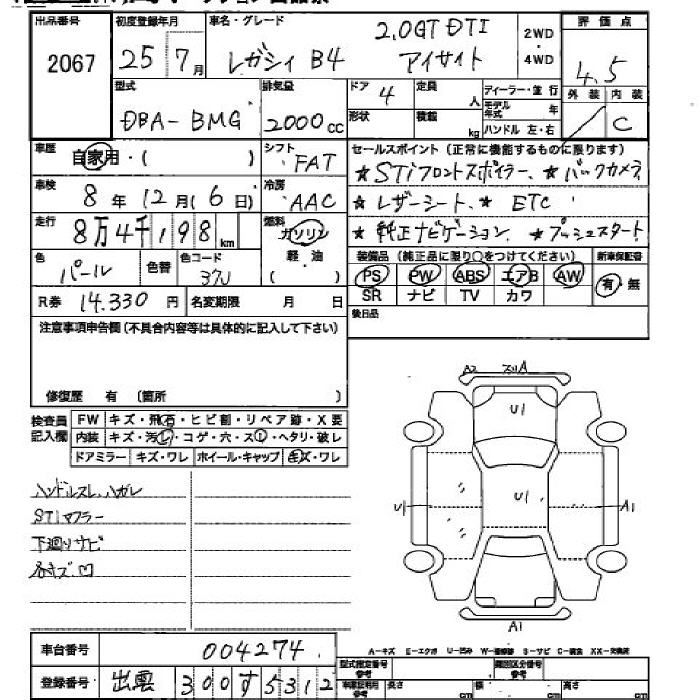 出品番号 初度登録年月 車名・グレード 評価点
2067 25年7月 レガシィ B4 2.0GT DTI アイサイト 2WD・4WD 4.5
外装 内装 C
型式 排気量 ドア 定員 ディーラー・並行
DBA-BMG 2000cc 4 人 モデル年式 年
形状 積載 kg ハンドル 左・右
車歴 自家用・( ) シフト FAT セールスポイント (正常に機能するものに限ります)
★STiフロントスポイラー、★バックカメラ
車検 8年12月(6日) 冷房 AAC ★レザーシート、★ETC
走行 8万4千198km 燃料 ガソリン 軽・油 ( ) ★純正ナビゲーション ★プッシュスタート
色 パール 色替 色コード 37J 装備品 (純正品に限り○をつけてください) 新車保証書
PS PW ABS エアB AW 有・無
R券 14.330円 名変期限 月 日 SR ナビ TV カワ
注意事項申告欄(不具合内容等は具体的に記入して下さい) 後日品
修復歴 有 (箇所 )
検査員記入欄 FW キズ・飛石・ヒビ割・リペア跡・X要
内装 キズ・汚レ・コゲ・穴・スレ・ヘタリ・破レ
ドアミラー キズ・ワレ ホイール・キャップ キズ・ワレ
A2 スリA
U1
U1 U1 A1
A1
ハンドルスレ、ハガレ
STIマフラー
下廻りサビ
各キズ凹
車台番号 004274
A-キズ E-エクボ U-凹み W-補修跡 S-サビ C-腐食 XX-交換済
登録番号 出雲 300 す 5312
型式指定番号 参考 類別区分番号 参考
車庫証明用 参考 長さ cm 幅 cm 高さ cm